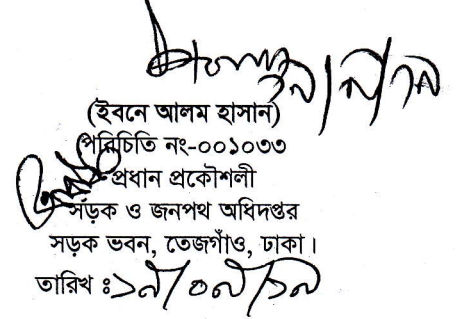 (ইবনে আলম হাসান)
পরিচিতি নং-০০১০৩৩
প্রধান প্রকৌশলী
সড়ক ও জনপথ অধিদপ্তর
সড়ক ভবন, তেজগাঁও, ঢাকা।
তারিখ ঃ